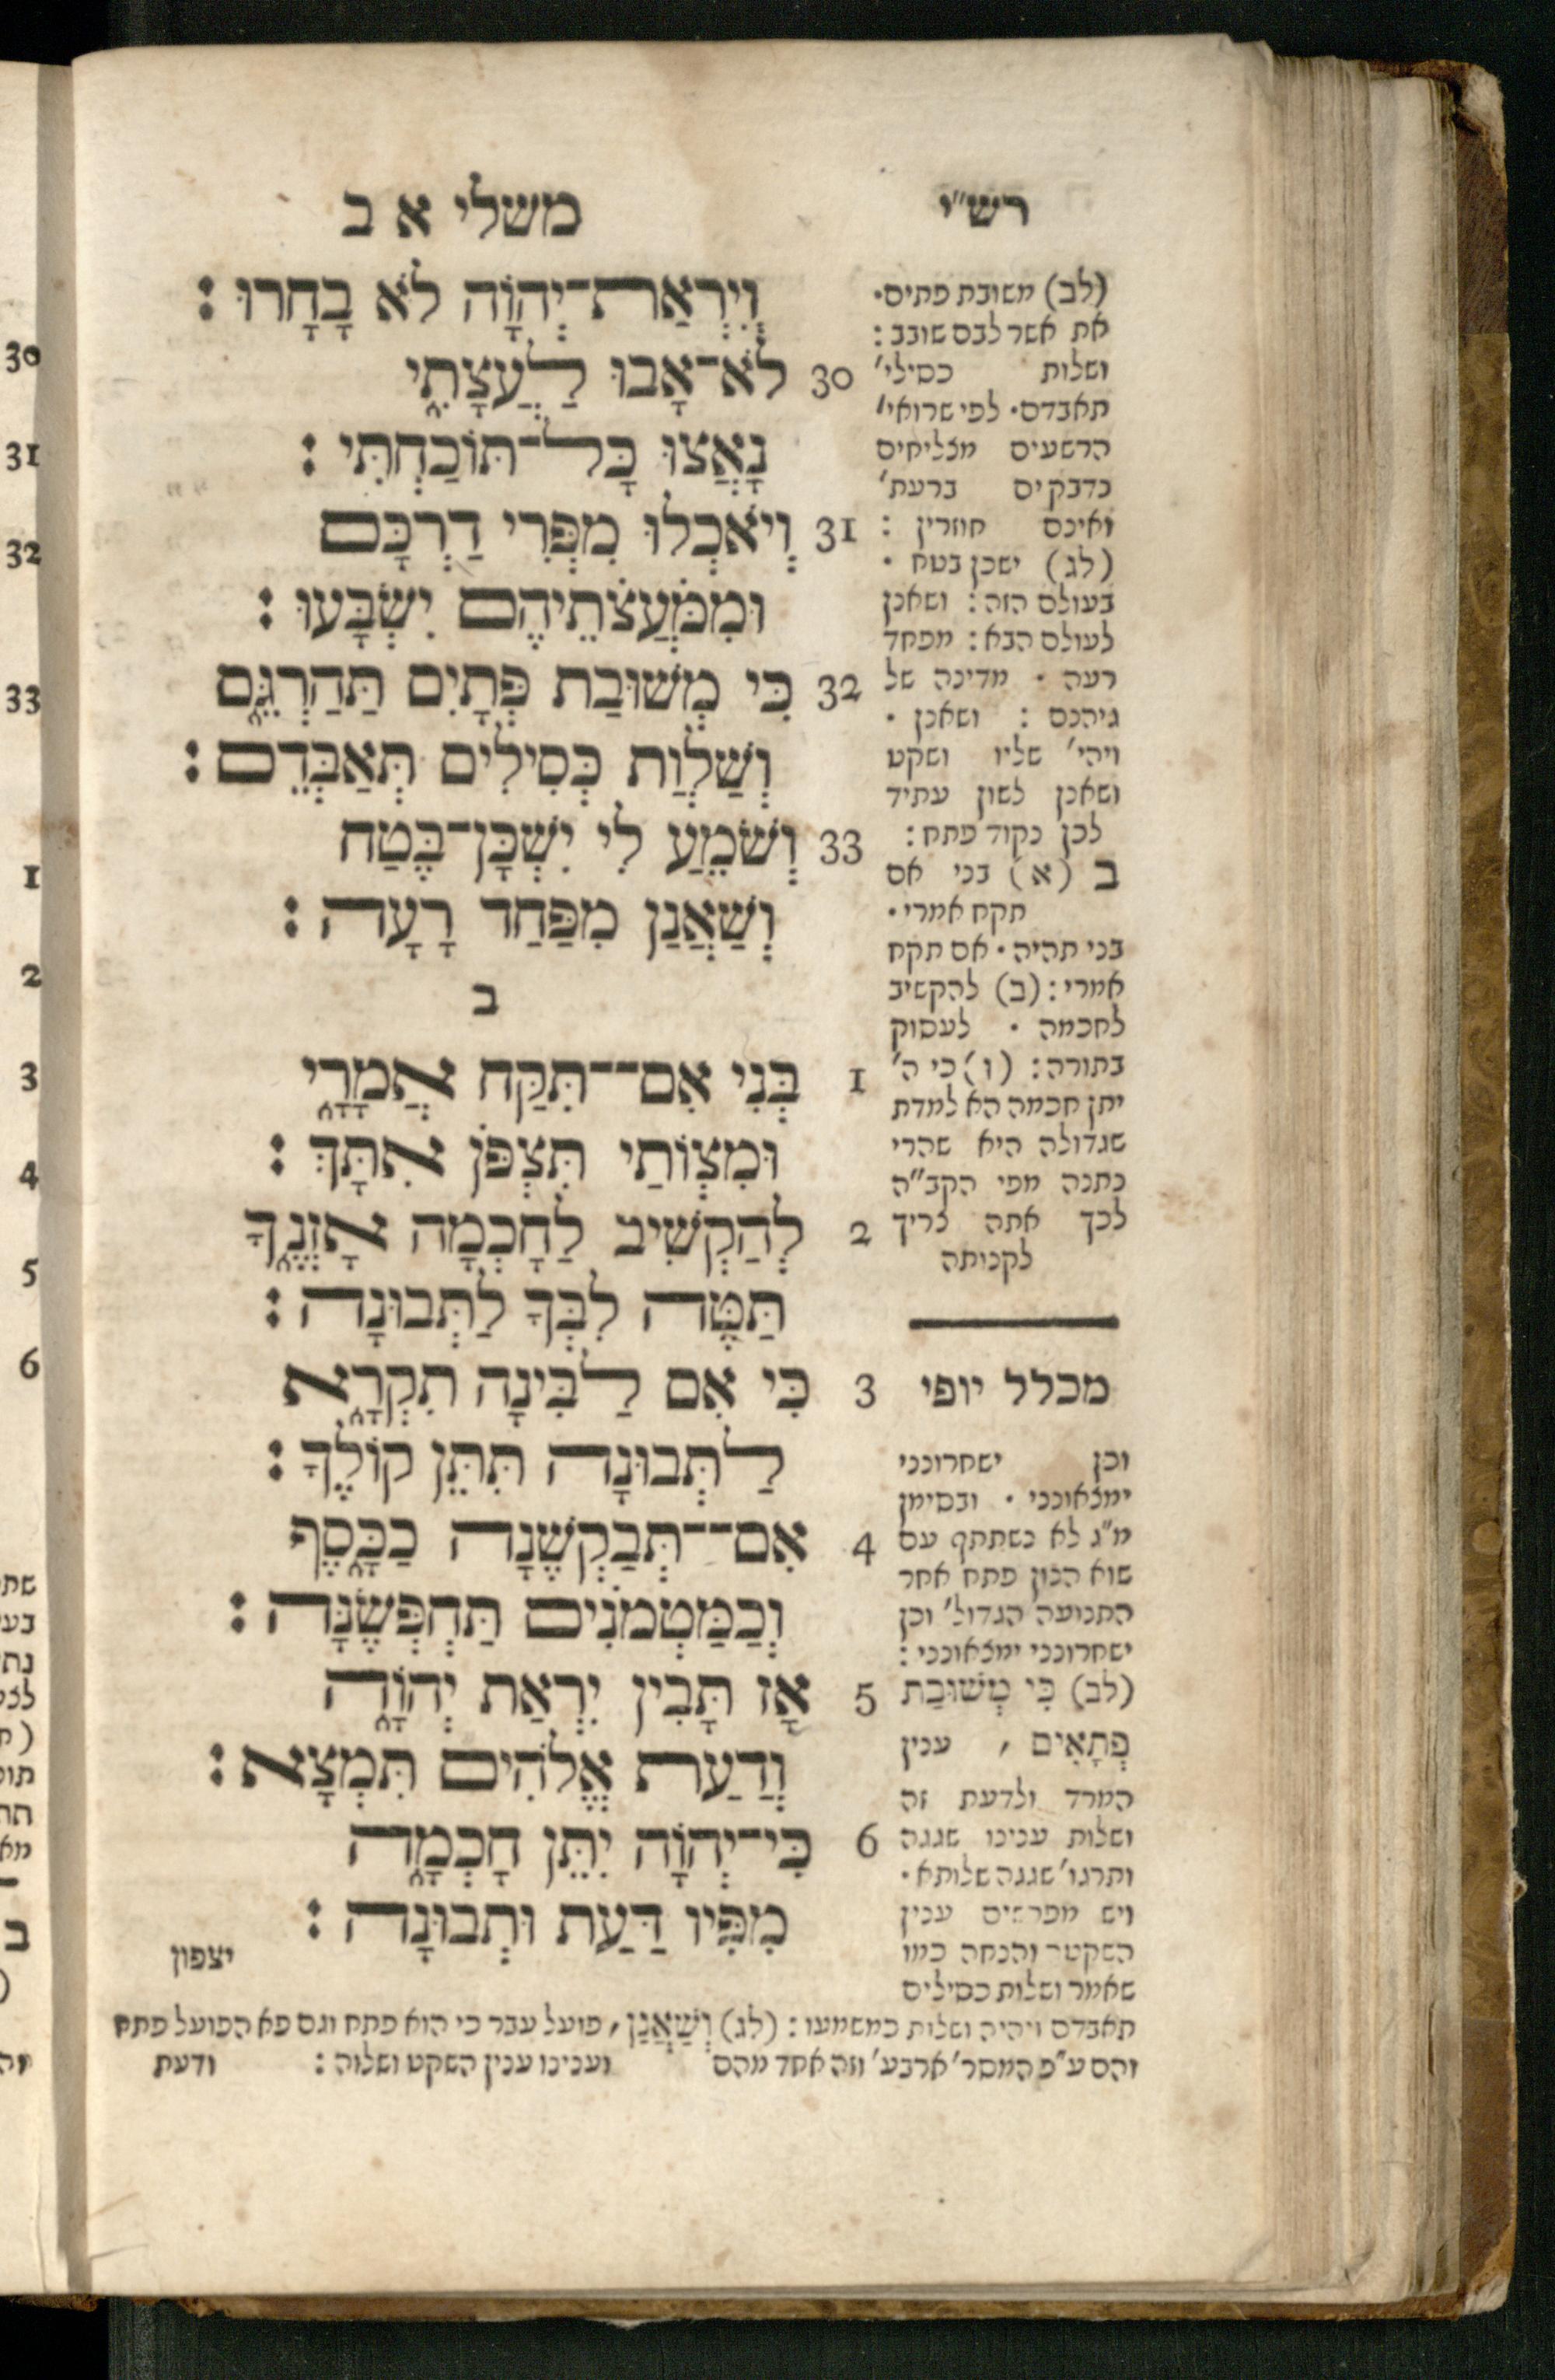 משלי א ב
וְיִרְאַת־יְהוָֹה לֹא בָחָרוּ :
30 לֹא־אָבוּ לַעֲצָתִי
נָאֲצוּ כָּל־תּוֹכַחְתִּי :
31 וְיֹאכְלוּ מִפְּרִי דַרְכָּם
וּמִמֹּעֲצֹתֵיהֶם יִשְׂבָּעוּ :
32 כִּי מְשׁוּבַת פְּתָיִם תַּהַרְגֵם
וְשַׁלְוַת כְּסִילִים תְּאַבְּדֵם :
33 וְשֹׁמֵעַ לִי יִשְׁכָּן־בֶּטַח
וְשַׁאֲנַן מִפַּחַד רָעָה :
ב
1 בְּנִי אִם־־תִּקַּח אֲמָרָי
וּמִצְוֹתַי תִּצְפֹּן אִתָּךְ :
2 לְהַקְשִׁיב לַחָכְמָה אָזְנֶךָ
תַּטֶּה לִבְּךָ לַתְּבוּנָה :
3 כִּי אִם לַבִּינָה תִקְרָא
לַתְּבוּנָה תִּתֵּן קוֹלֶךָ :
4 אִם־־תְּבַקְשֶׁנָּה כַכָּסֶף
וְכַמַּטְמֹנִים תַּחְפְּשֶׂנָּה :
5 אָז תָּבִין יִרְאַת יְהוָֹה
וְדַעַת אֱלֹהִים תִּמְצָא :
6 כִּי־יְהוָֹה יִתֵּן חָכְמָה
מִפִּיו דַּעַת וּתְבוּנָה :
יצפון
רש״י
(לב) משובת פתים·
את אשר לבם שובב :
ושלות כסילי׳
תאבדם· לפי שרואי׳
הרשעים מצליחים
נדבקים ברעת׳
ואינם חוזרין :
(לג) ישכן בטח ·
בעולם הזה : ושאנן
לעולם הבא : מפחד
רעה · מדינה של
גיהנם : ושאנן ·
ויהי׳ שליו ושקט
ושאנן לשון עתיד
לכן נקוד פתח :
ב (א) בני אם
תקח אמרי·
בני תהיה· אם תקח
אמרי : (ב) להקשיב
לחכמה · לעסוק
בתורה : (ו) כי ה׳
יתן חכמה הא למדת
שגדולה היא שהרי
נתנה מפי הקב״ה
לכך אתה צריך
לקנותה
מכלל יופי
וכן ישחרונני
ימצאונני · ובסימן
מ״ג לא נשתתף עם
שוא הנון פתח אחר
התנועה הגדול׳ וכן
ישחרונני ימצאונני :
(לב) כִּי מְשׁוּבַת
פְתָאִים , ענין
המרד ולדעת זה
ושלות ענינו שגגה
ותרגו׳ שגגה שלותא·
ויש מפרשים ענין
השקט והנחה כמו
שאמר ושלות כסילים
תאבדם ויהיה ושלות כמשמעו : (לג) וְשַׁאֲנַן , פועל עבר כי הוא פתח וגם פא הפועל פתח
והם ע״פ המסר׳ ארבע׳ וזה אחד מהם וענינו ענין השקט ושלוה : ודעת